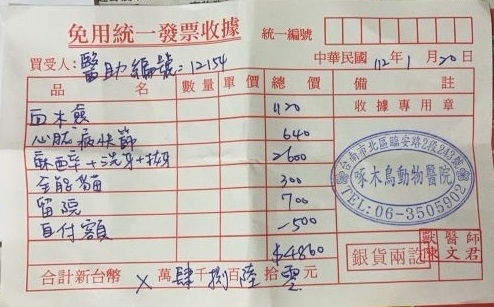 免用統一發票收據
統一編號
買受人：醫助編號：12154
中華民國 112年 1月 20日
品名 數量 單價 總價 備註
1120
收據專用章
心肌病快篩 640
麻醉+洗牙+拔牙 2600
全能貓 300
留院 700
自付額 -500
$4860
台南市北區臨安路2段243號
啄木鳥動物醫院
TEL：06-3505902
銀貨兩訖
獸醫師
陳文君
合計新台幣 X 萬 肆 千 捌 百 陸 拾 零 元